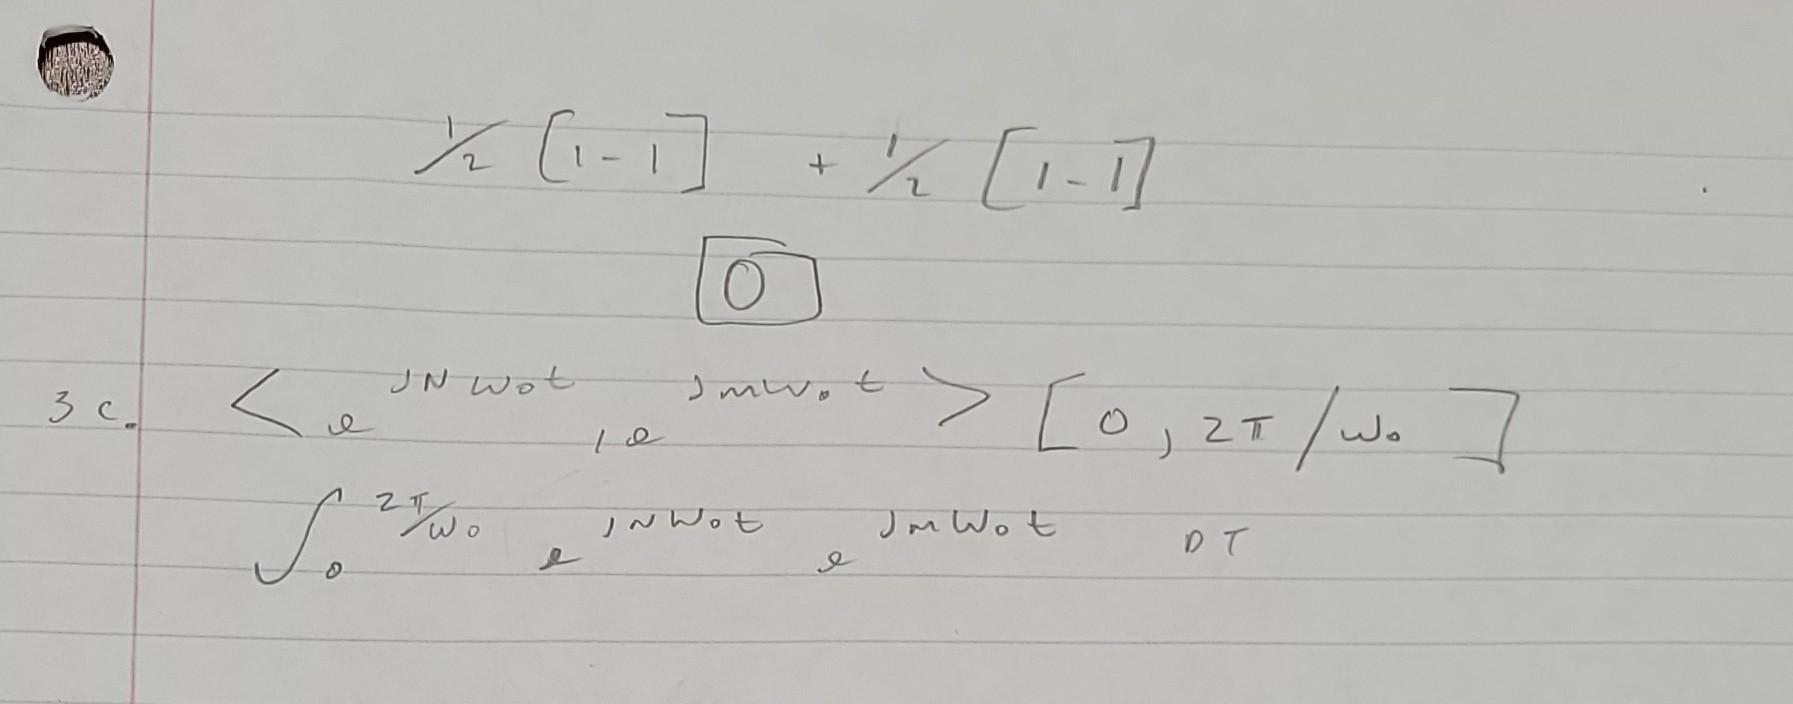 1/2 [1-1] + 1/2 [1-1]
0
3c. < e^{JNWot}, e^{Jmwot} > [0, 2π/wo]
∫_0^{2π/wo} e^{JNWot} e^{JmWot} DT